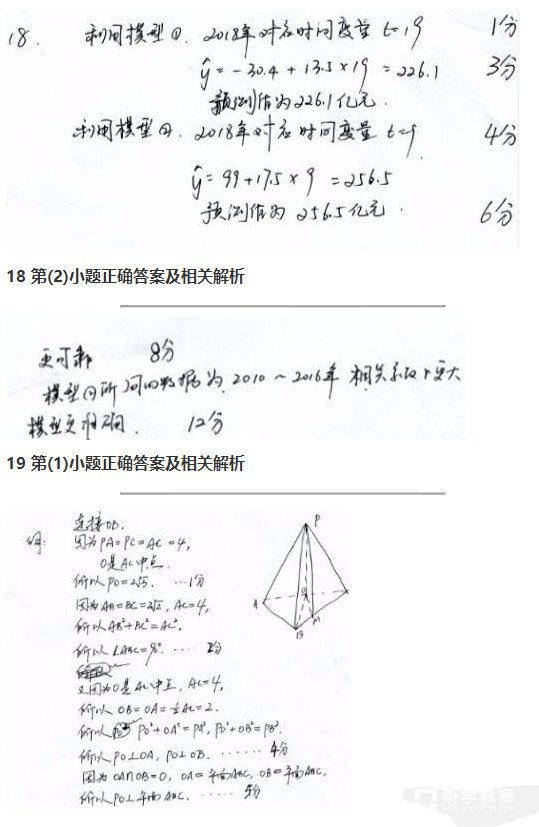 18. 利用模型①. 2018年对应时间变量 t=19 1分
ŷ = -30.4 + 13.5 × 19 = 226.1 3分
预测值为226.1亿元.
利用模型②. 2018年对应时间变量 t=9 4分
ŷ = 99 + 17.5 × 9 = 256.5
预测值为 256.5亿元. 6分
18 第(2)小题正确答案及相关解析
更可靠 8分
模型②所用的数据为 2010～2016年 相关系数r更大
模型更准确. 12分
19 第(1)小题正确答案及相关解析
解: 连接OB.
因为PA=PC=AC=4,
O是AC中点.
所以PO=2√3. ...1分
因为AB=BC=2√2, AC=4,
所以AB²+BC²=AC².
所以∠ABC=90°. ..... 2分
又因为O是AC中点, AC=4,
所以 OB=OA=½AC=2.
所以 PO²+OA²=PA², PO²+OB²=PB².
所以PO⊥OA, PO⊥OB. ...... 4分
因为 OA∩OB=O, OA 平面ABC, OB 平面ABC,
所以PO⊥平面ABC. ..... 5分
P
A
O
B
M
秦学教育